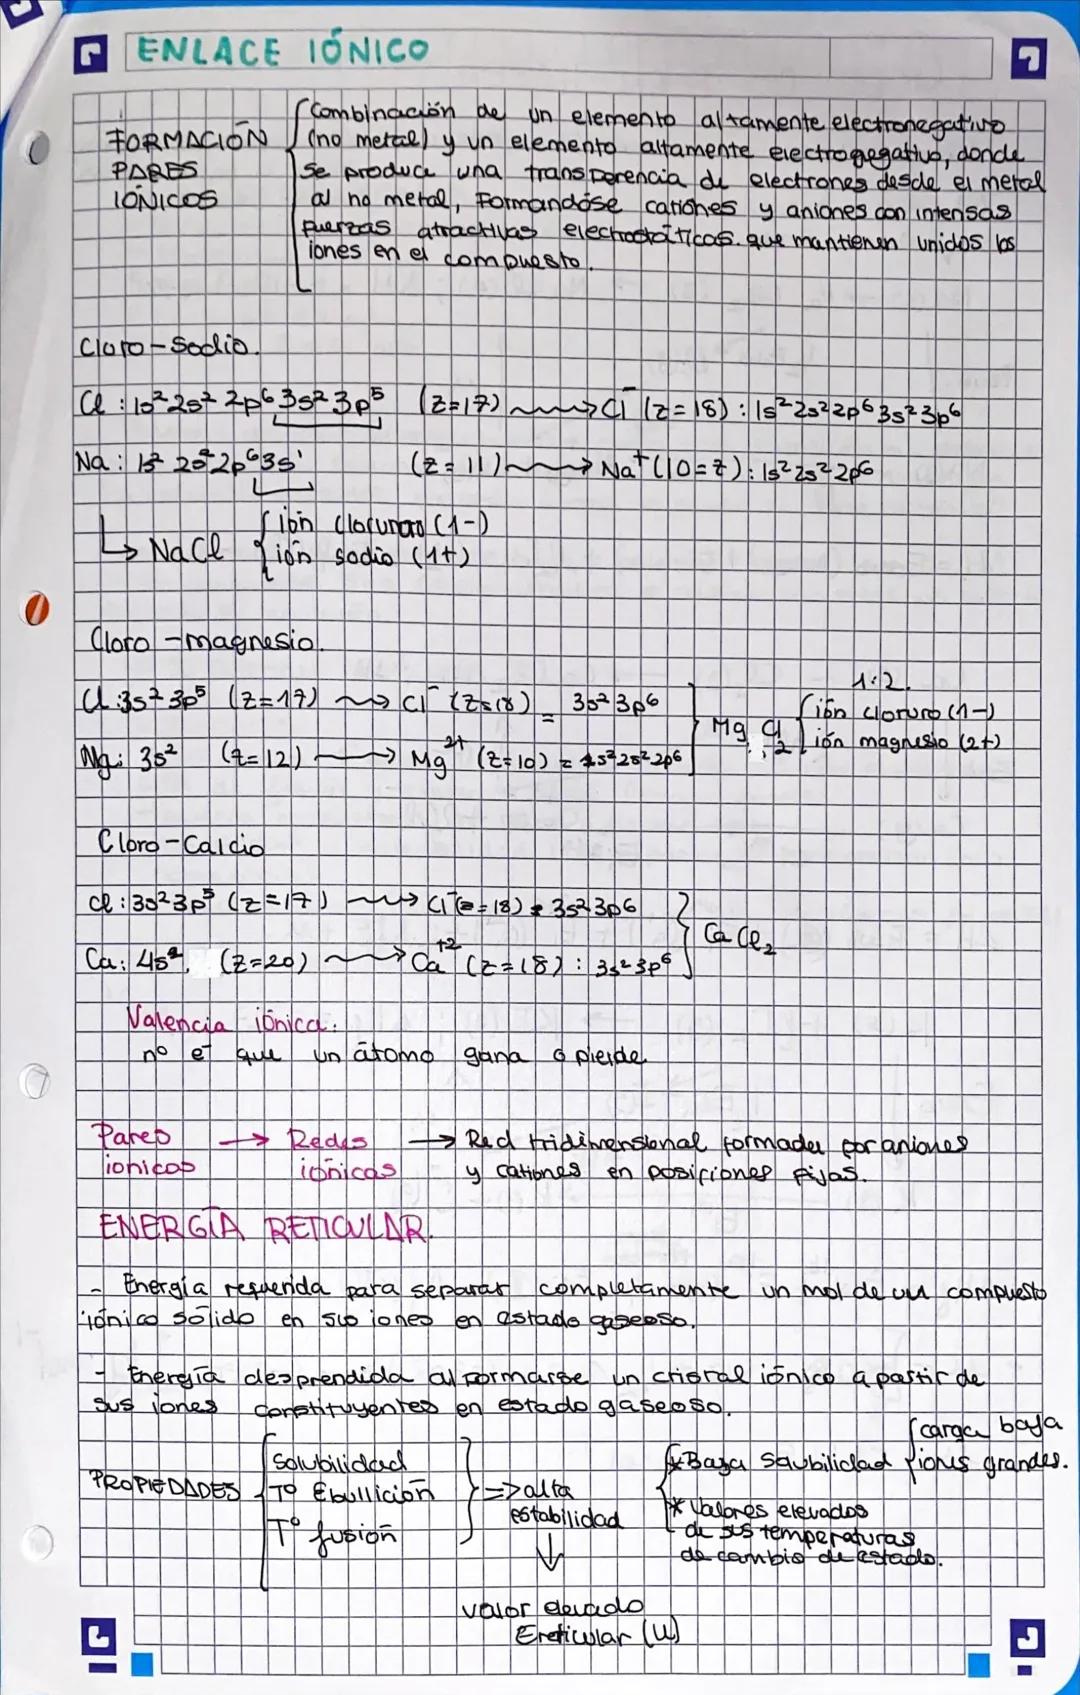 ENLACE IÓNICO
FORMACIÓN PARES IÓNICOS
Combinación de un elemento altamente electronegativo
(no metal) y un elemento altamente electronegativo, donde
se produce una transferencia de electrones desde el metal
al no metal, Formandóse cationes y aniones con intensas
fuerzas atractivas electrostáticas. que mantienen unidos los
iones en el compuesto.
Cloro-Sodio.
Cl : 1s² 2s² 2p⁶ 3s² 3p⁵ (z=17) → Cl⁻ (z=18) : 1s² 2s² 2p⁶ 3s² 3p⁶
Na : 1s² 2s² 2p⁶ 3s¹ (z=11) → Na⁺ (10=z) : 1s² 2s² 2p⁶
↳ NaCl { ión cloruro (1-)
ión sodio (1+)
Cloro-magnesio.
Cl : 3s² 3p⁵ (z=17) → Cl⁻ (z=18) = 3s² 3p⁶
Mg : 3s² (z=12) → Mg²⁺ (z=10) = 1s² 2s² 2p⁶
MgCl₂
1:2.
ión cloruro (1-)
ión magnesio (2+)
Cloro-Calcio
Cl : 3s² 3p⁵ (z=17) → Cl⁻ (z=18) : 3s² 3p⁶
Ca : 4s². (z=20) → Ca⁺² (z=18) : 3s² 3p⁶
CaCl₂
Valencia iónica.
nº e⁻ que un átomo gana o pierde
Pares iónicos → Redes iónicas → Red tridimensional formada por aniones
y cationes en posiciones fijas.
ENERGÍA RETICULAR.
- Energía requerida para separar completamente un mol de un compuesto
iónico sólido en sus iones en estado gaseoso.
- Energía desprendida al formarse un cristal iónico a partir de
sus iones constituyentes en estado gaseoso.
PROPIEDADES
Solubilidad
Tº Ebullición
Tº fusión
=> alta
estabilidad
↓
valor elevado
Ereticular (U)
* Baja solubilidad { carga baja
iones grandes.
* Valores elevados
de sus temperaturas
de cambio de estado.